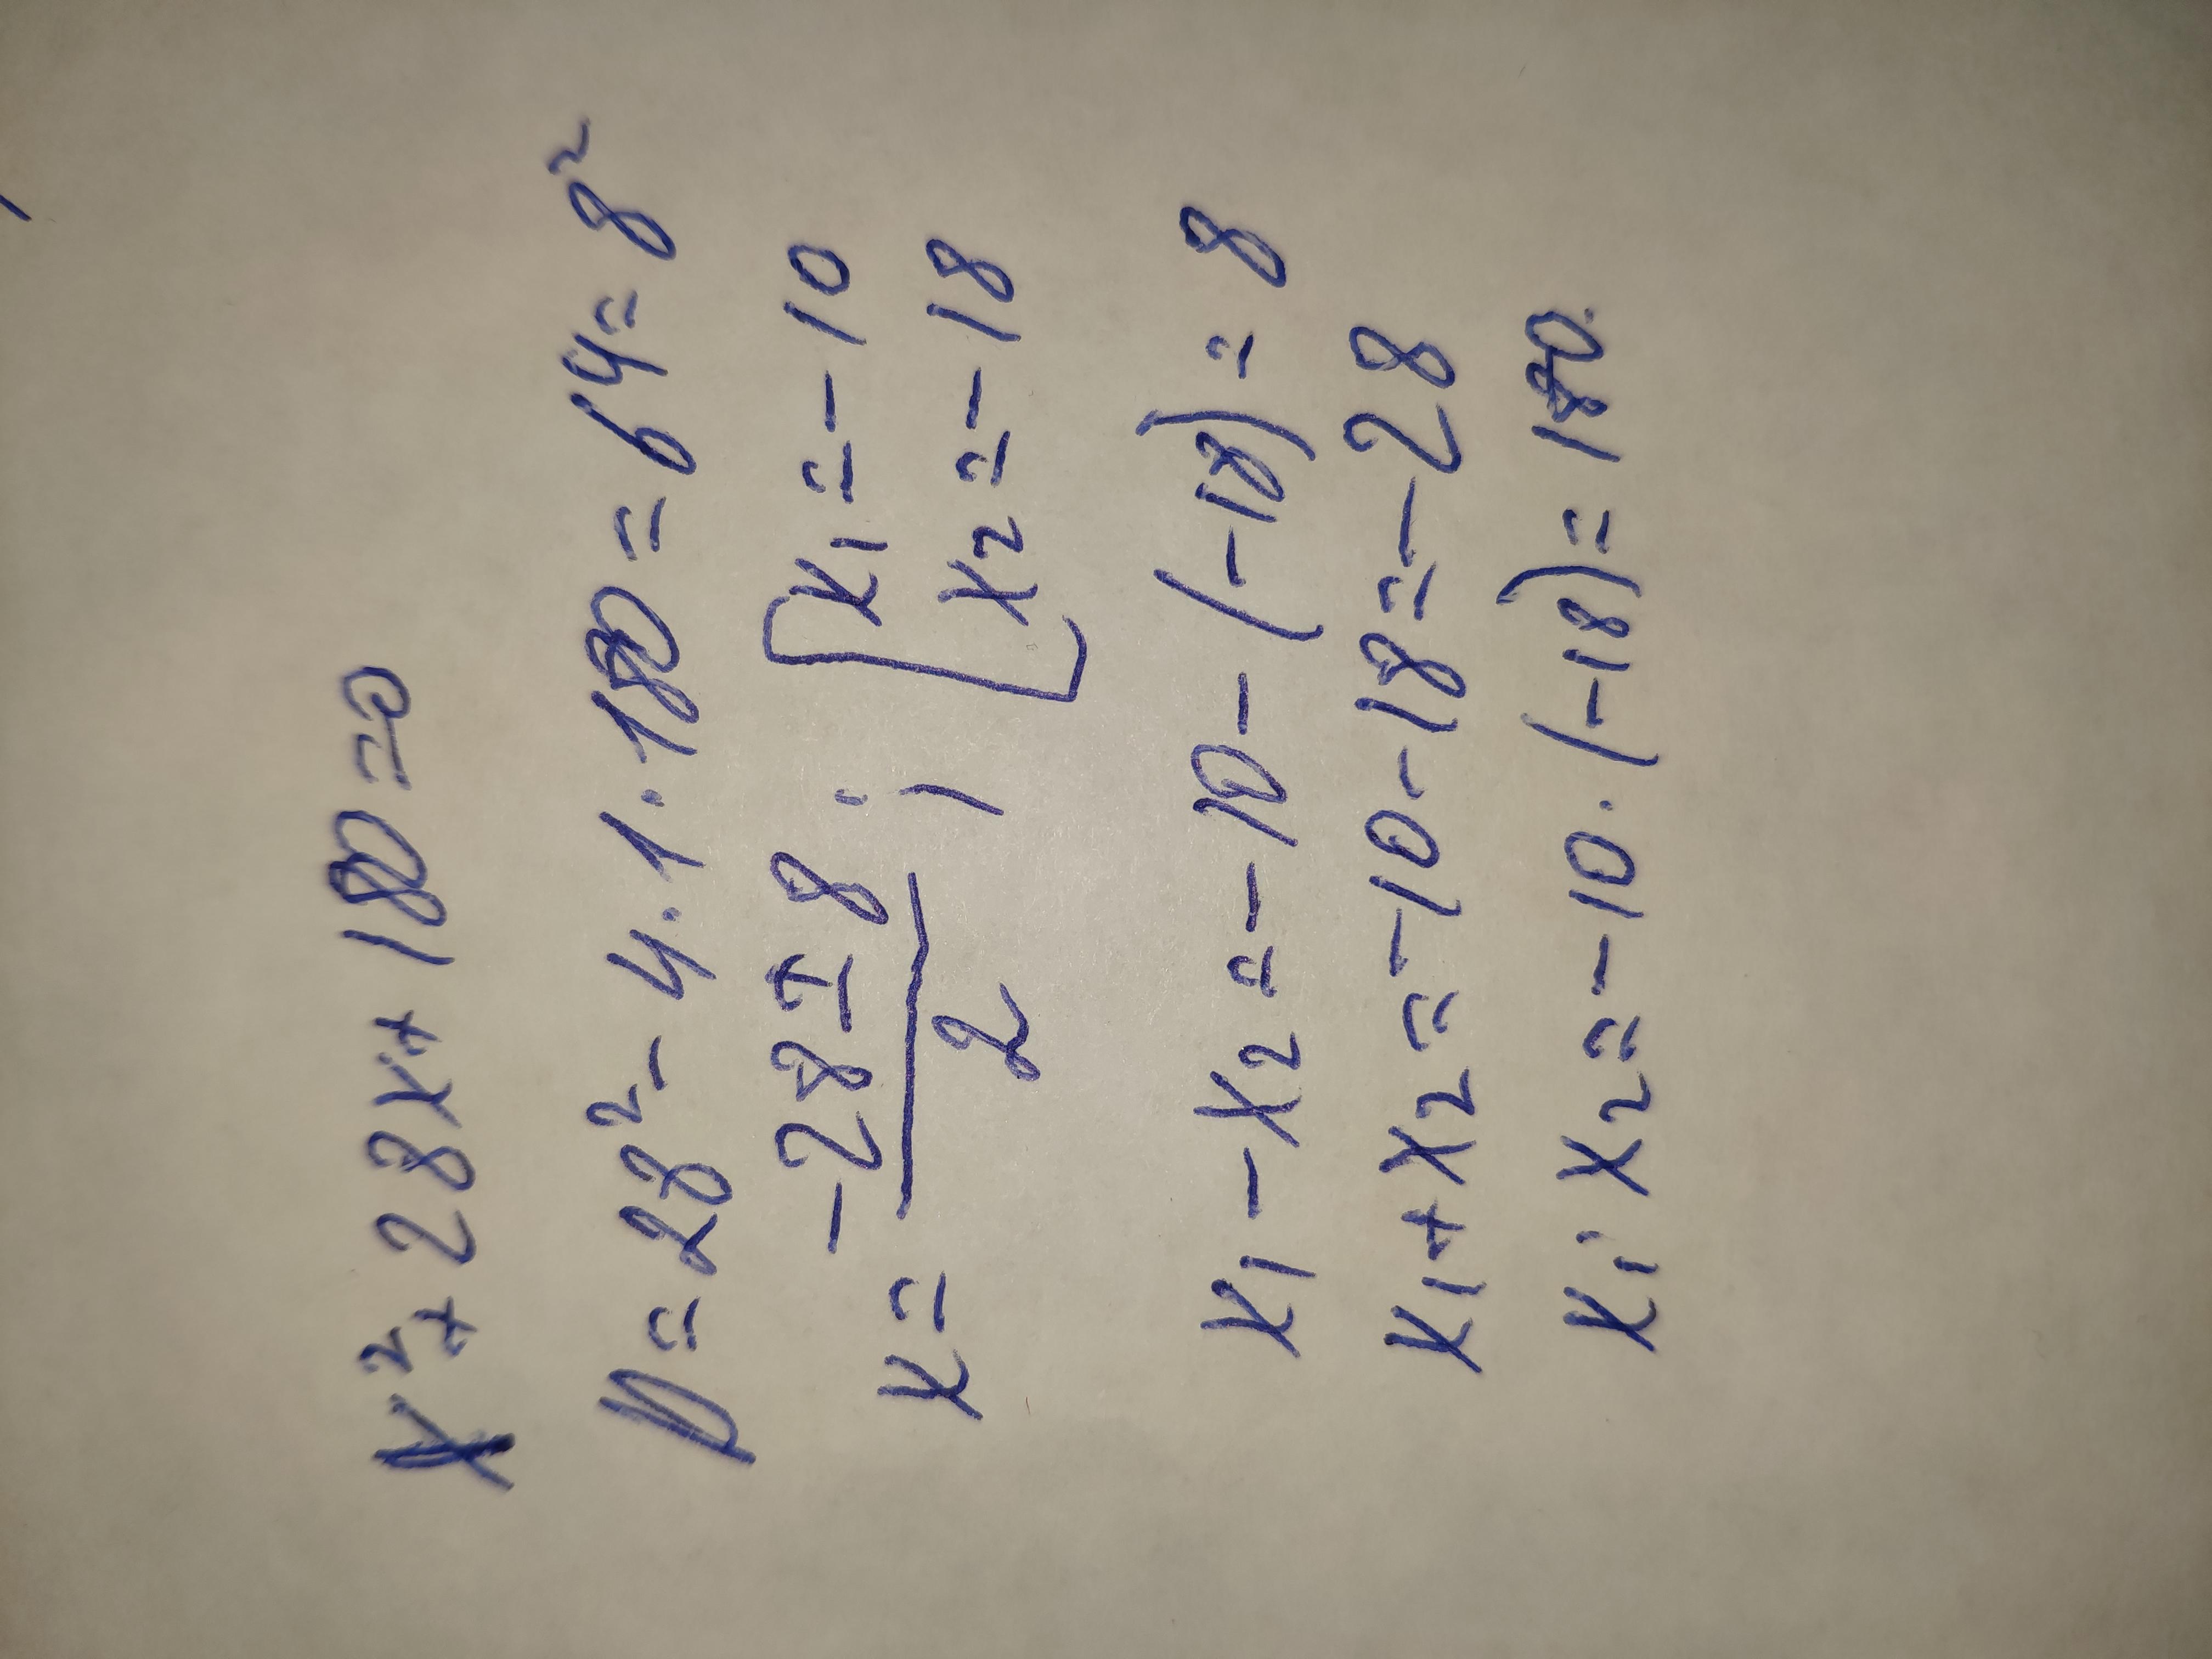 x² + 28x + 180 = 0
D = 28² - 4·1·180 = 64 = 8²
x = (-28 ± 8)/2 ; [x₁ = -10
x₂ = -18
x₁ - x₂ = -10 - (-18) = 8
x₁ + x₂ = -10 - 18 = -28
x₁ · x₂ = -10 · (-18) = 180.